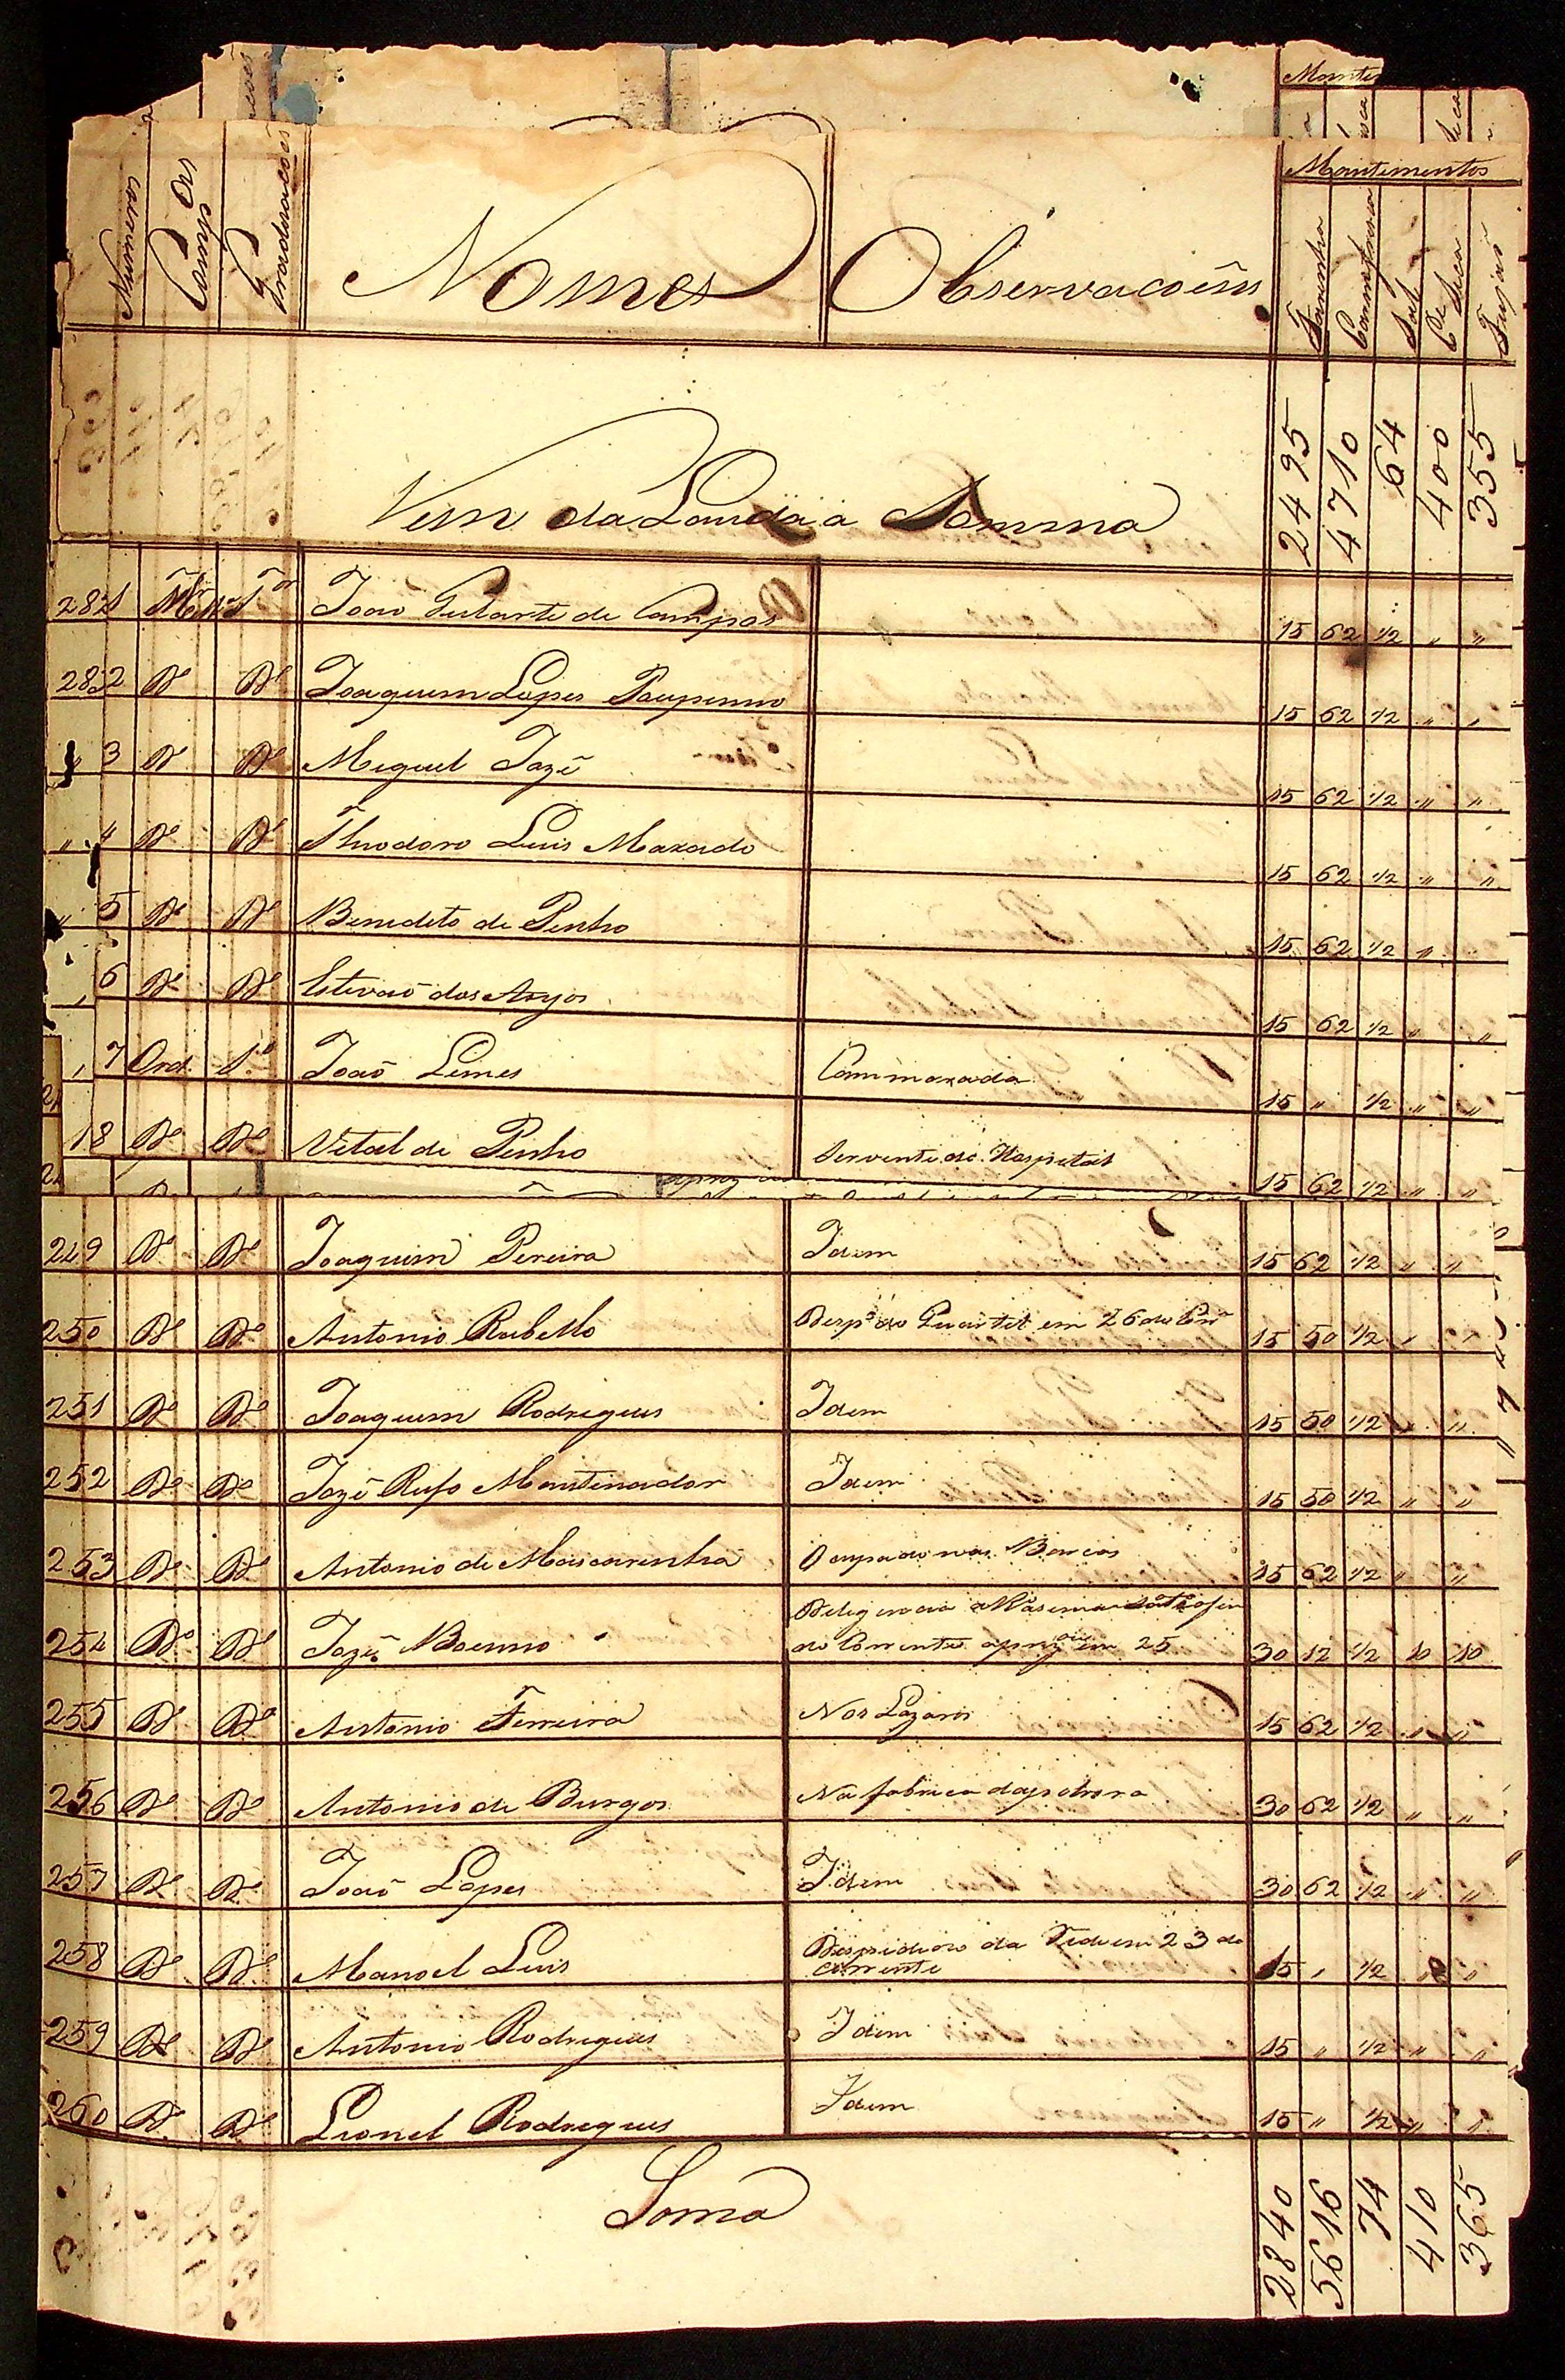 Mantim
Numeros Comp.as Graduaçoẽs Nomes Observaçoẽns Mantimentos
Farinha Carne fresca Sal C.e Seca Fejaõ
Vem da Lauda a Somma 2495 4710 64 400 355
João Gularte de Campos 15 62 1/2 " "
2832 D.o D.o Joaquim Lopes 15 62 1/2 " "
" 3 D.o D.o Miguel Jozé 15 62 1/2 " "
" 4 D.o D.o Theodoro Luis Maxado 15 62 1/2 " "
" 5 D.o D.o Benedito de Pinho 15 62 1/2 "
6 D.o D.o Estevaõ dos Anjos 15 62 1/2 " "
" 7 Ord. 1.o Joaõ Lemes Cammarada 15 " 1/2 " "
8 D.o D.o Vital de Pinho Servente do Hospital 15 62 1/2 " "
249 D.o D.o Joaquim Pereira Idem 15 62 1/2 " "
250 D.o D.o Antonio Rabello Desp.o do Quartel em 26 do Corr 15 50 1/2 " "
251 D.o D.o Joaquim Rodrigues Idem 15 50 1/2 " "
252 D.o D.o Jozé Rufo Mantinador Idem 15 50 1/2 " "
253 D.o D.o Antonio de Mascarenha Ocupado nas Barcas 15 62 1/2 " "
Deligencia
254 D.o D.o Jozé Bueno do Corrente em 25 30 12 1/2 10 10
255 D.o D.o Antonio Ferreira Nos Lazaros 15 62 1/2 " "
256 D.o D.o Antonio de Burgos Na fabrica da polvora 30 62 1/2 " "
257 D.o D.o Joaõ Lopes Idem 30 62 1/2 " "
258 D.o D.o Manoel Luis Despedido da em 23 do
corrente 15 " 1/2 " "
259 D.o D.o Antonio Rodrigues Idem 15 " 1/2 " "
260 D.o D.o Lionel Rodrigues Idem 15 " 1/2 " "
Soma 2840 5616 74 410 365